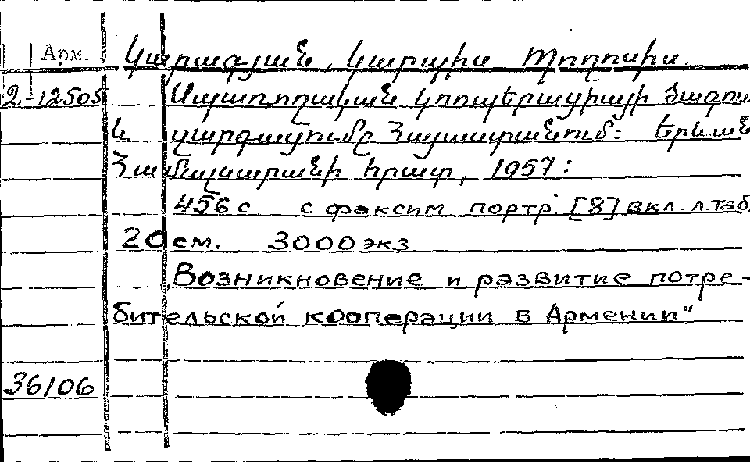 Арм. Կարագյան, Կարպիս Պողոսի
2-12505 Սպառողական կոոպերացիայի ծագու
և զարգացումը Հայաստանում: Երևան
Համալսարանի հրատ, 1957:
456 с с факсим портр. [8] вкл. л. таб
20 см. 3000 экз
Возникновение и развитие потре-
бительской кооперации в Армении"
36106